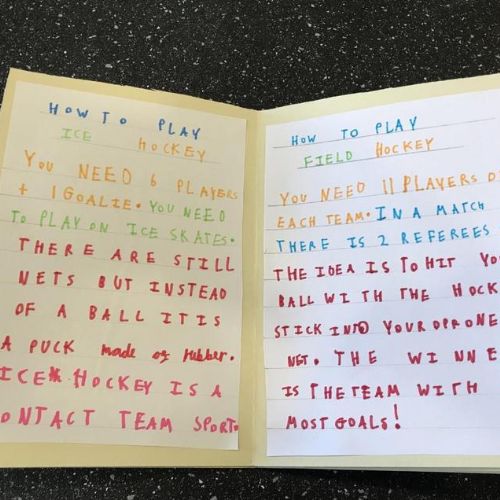 HOW TO PLAY
ICE HOCKEY
YOU NEED 6 PLAYERS
+ 1 GOALIE. YOU NEED
TO PLAY ON ICE SKATES.
THERE ARE STILL
NETS BUT INSTEAD
OF A BALL IT IS
A PUCK made of rubber.
ICE HOCKEY IS A
CONTACT TEAM SPORT.
HOW TO PLAY
FIELD HOCKEY
YOU NEED 11 PLAYERS
EACH TEAM. IN A MATCH
THERE IS 2 REFEREES
THE IDEA IS TO HIT
BALL WITH THE HOCK
STICK INTO YOUR OPRONE
NET. THE WINNE
IS THE TEAM WITH
MOST GOALS!